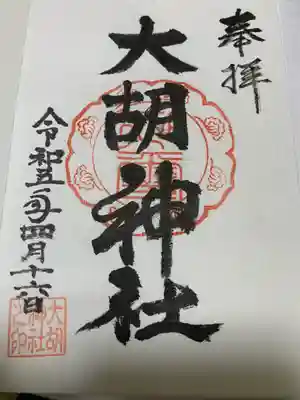 奉拝
大胡神社
令和五年四月十六日
大胡神社之印